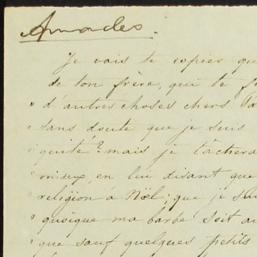 Amades.
Je vais te copier qu
de ton frère, qui te f
d'autres choses chers Pa
sans doute que je suis
quité? mais je tâchera
mieux, en lui disant que
religion à Nöel; que je su
quoique ma barbe soit au
que sauf quelques petits